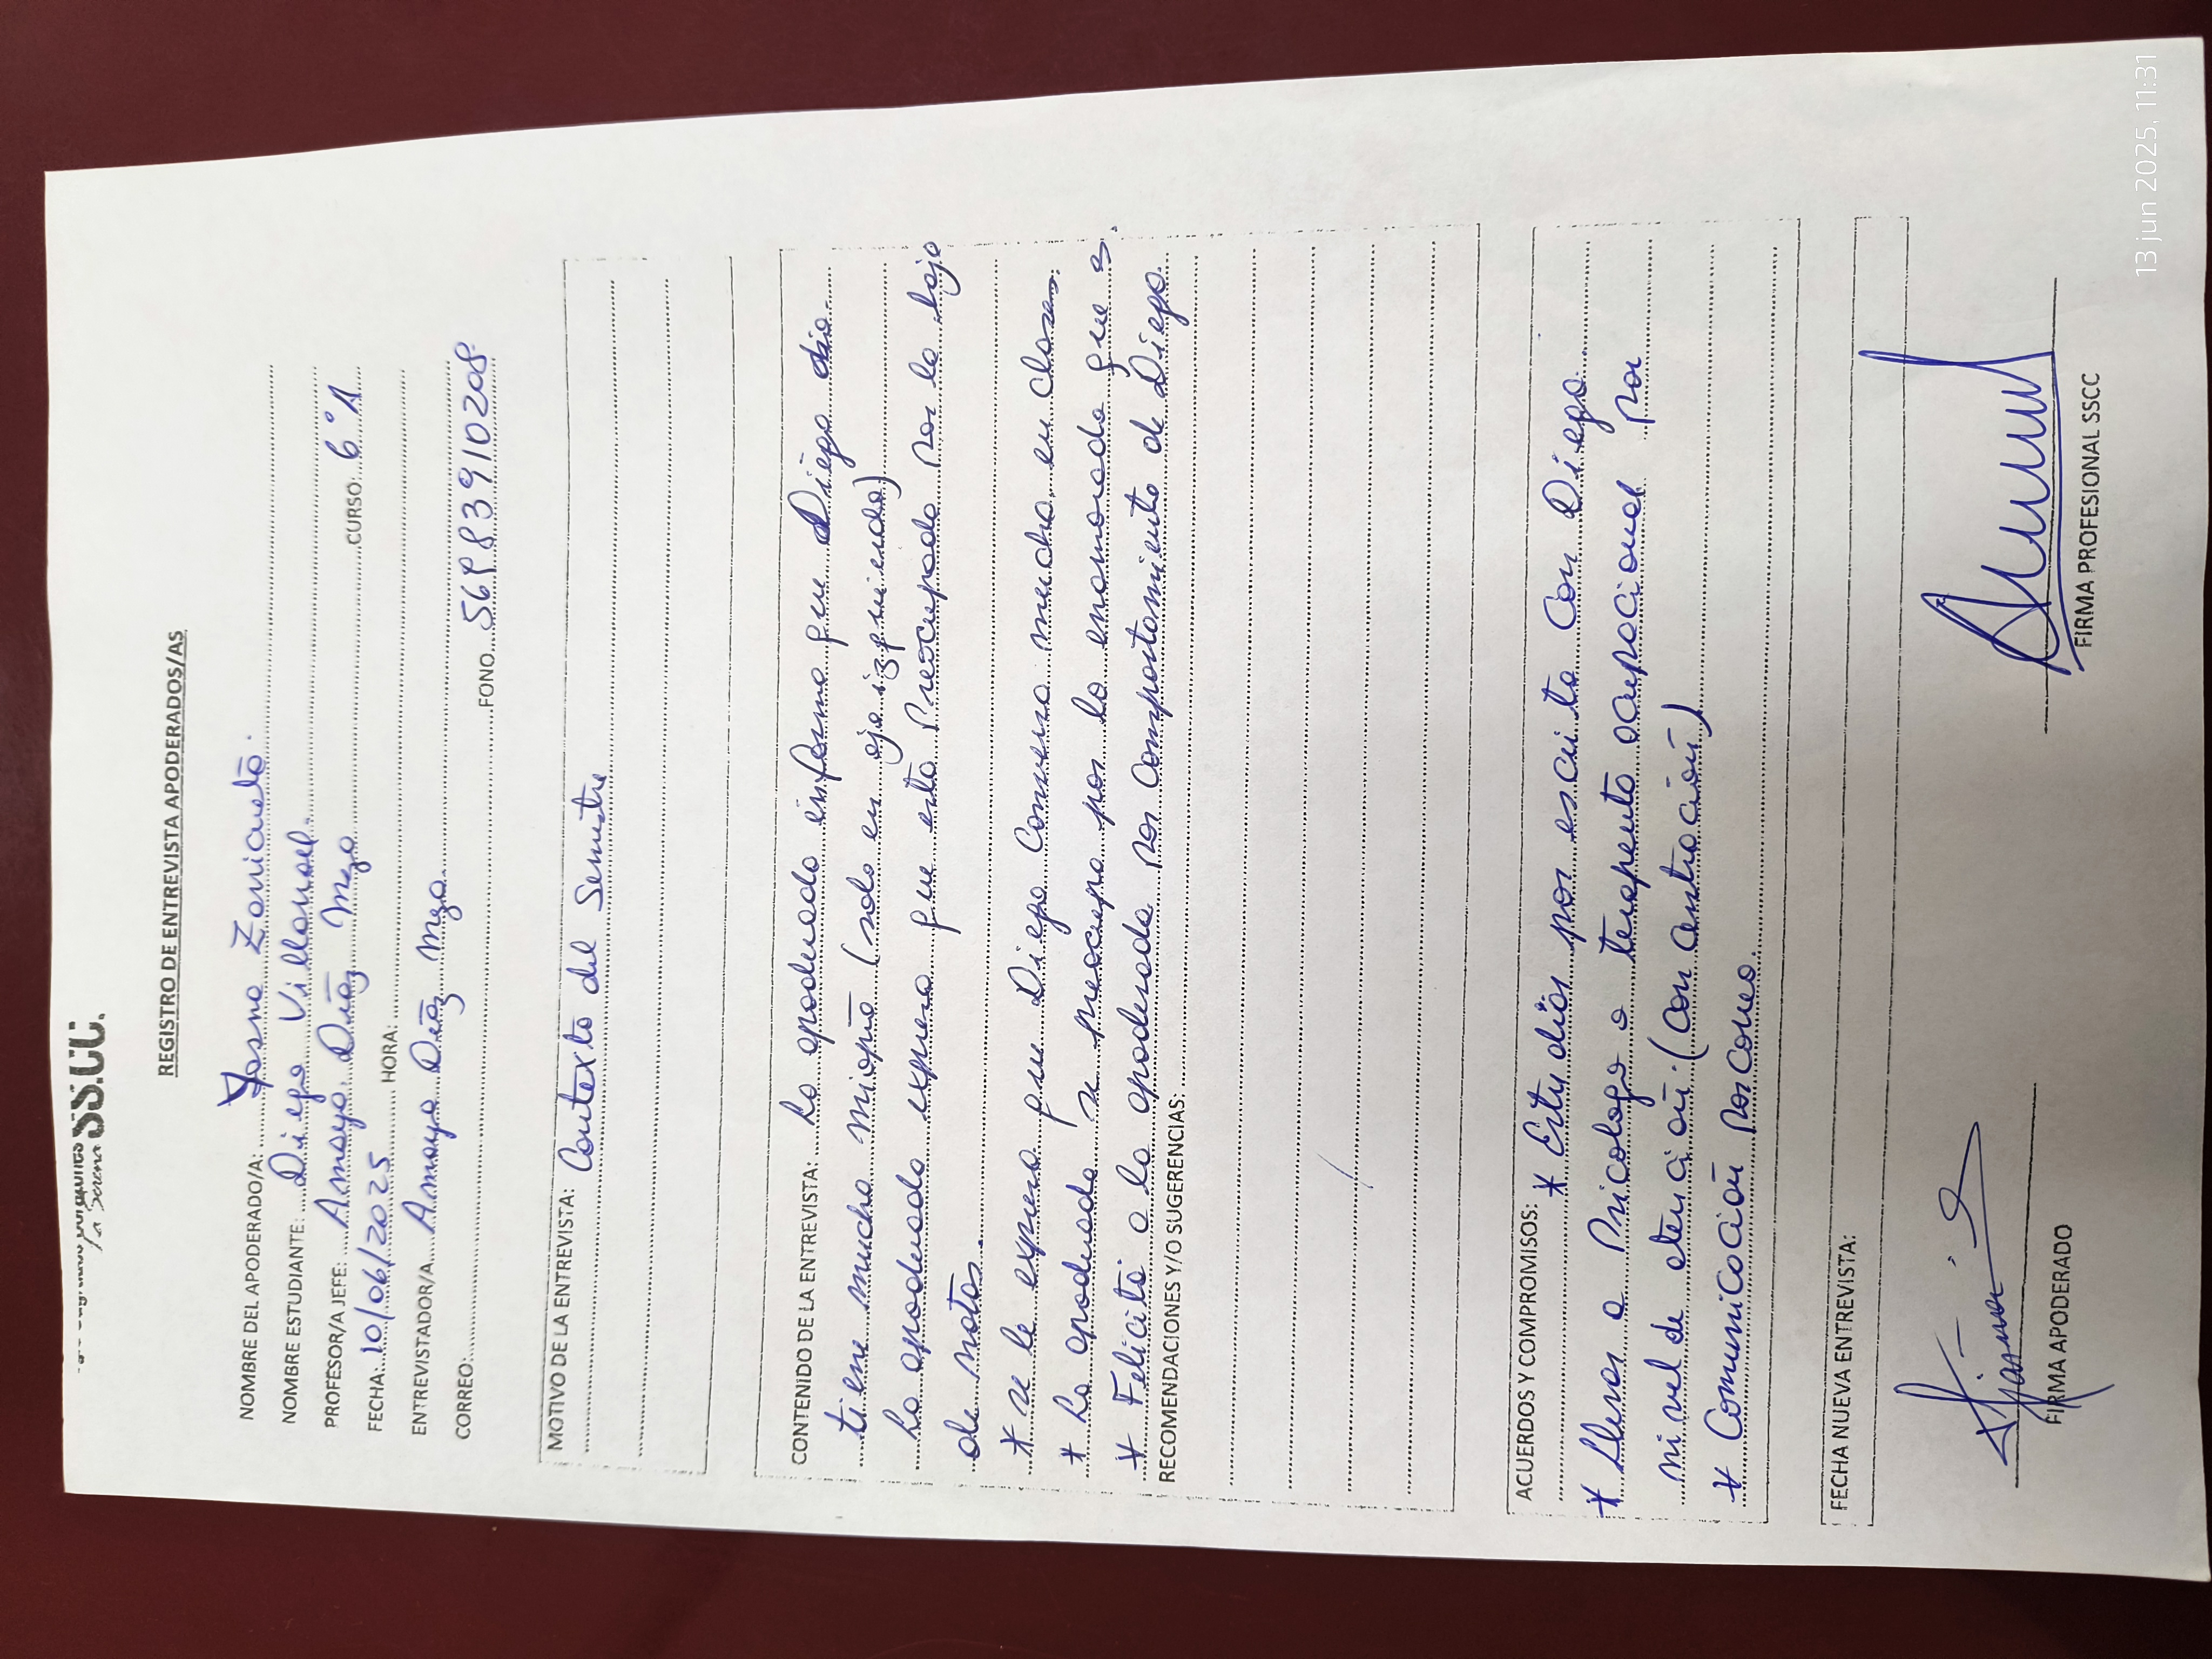 SS.CC.
La Serena
REGISTRO DE ENTREVISTA APODERADOS/AS
NOMBRE DEL APODERADO/A: Yasna Zaricueta.
NOMBRE ESTUDIANTE: Diego Villarroel.
PROFESOR/A JEFE: Amaya Díaz Mzo CURSO: 6°A
FECHA: 10/06/2025 HORA:
ENTREVISTADOR/A Amaya Díaz Mzo.
CORREO: FONO 56983910208
MOTIVO DE LA ENTREVISTA: Contexto del Semestre
CONTENIDO DE LA ENTREVISTA: La apoderada informa que Diego
tiene mucha miopía (solo en ojo izquierdo)
La apoderada expresa que está Preocupada por la baja
de notas.
* se le expresa que Diego Conversa mucho en clases.
* La apoderada se preocupa por lo enamorado que es
* Felicito a la apoderada por Comportamiento de Diego
RECOMENDACIONES Y/O SUGERENCIAS:
ACUERDOS Y COMPROMISOS: * Estudios por escrito Con Diego
* Llevar a Psicologo o terapeuta ocupacional por
nivel de atención. (Concentración)
* Comunicación por correo.
FECHA NUEVA ENTREVISTA:
FIRMA APODERADO
FIRMA PROFESIONAL SSCC
13 jun 2025, 11:31